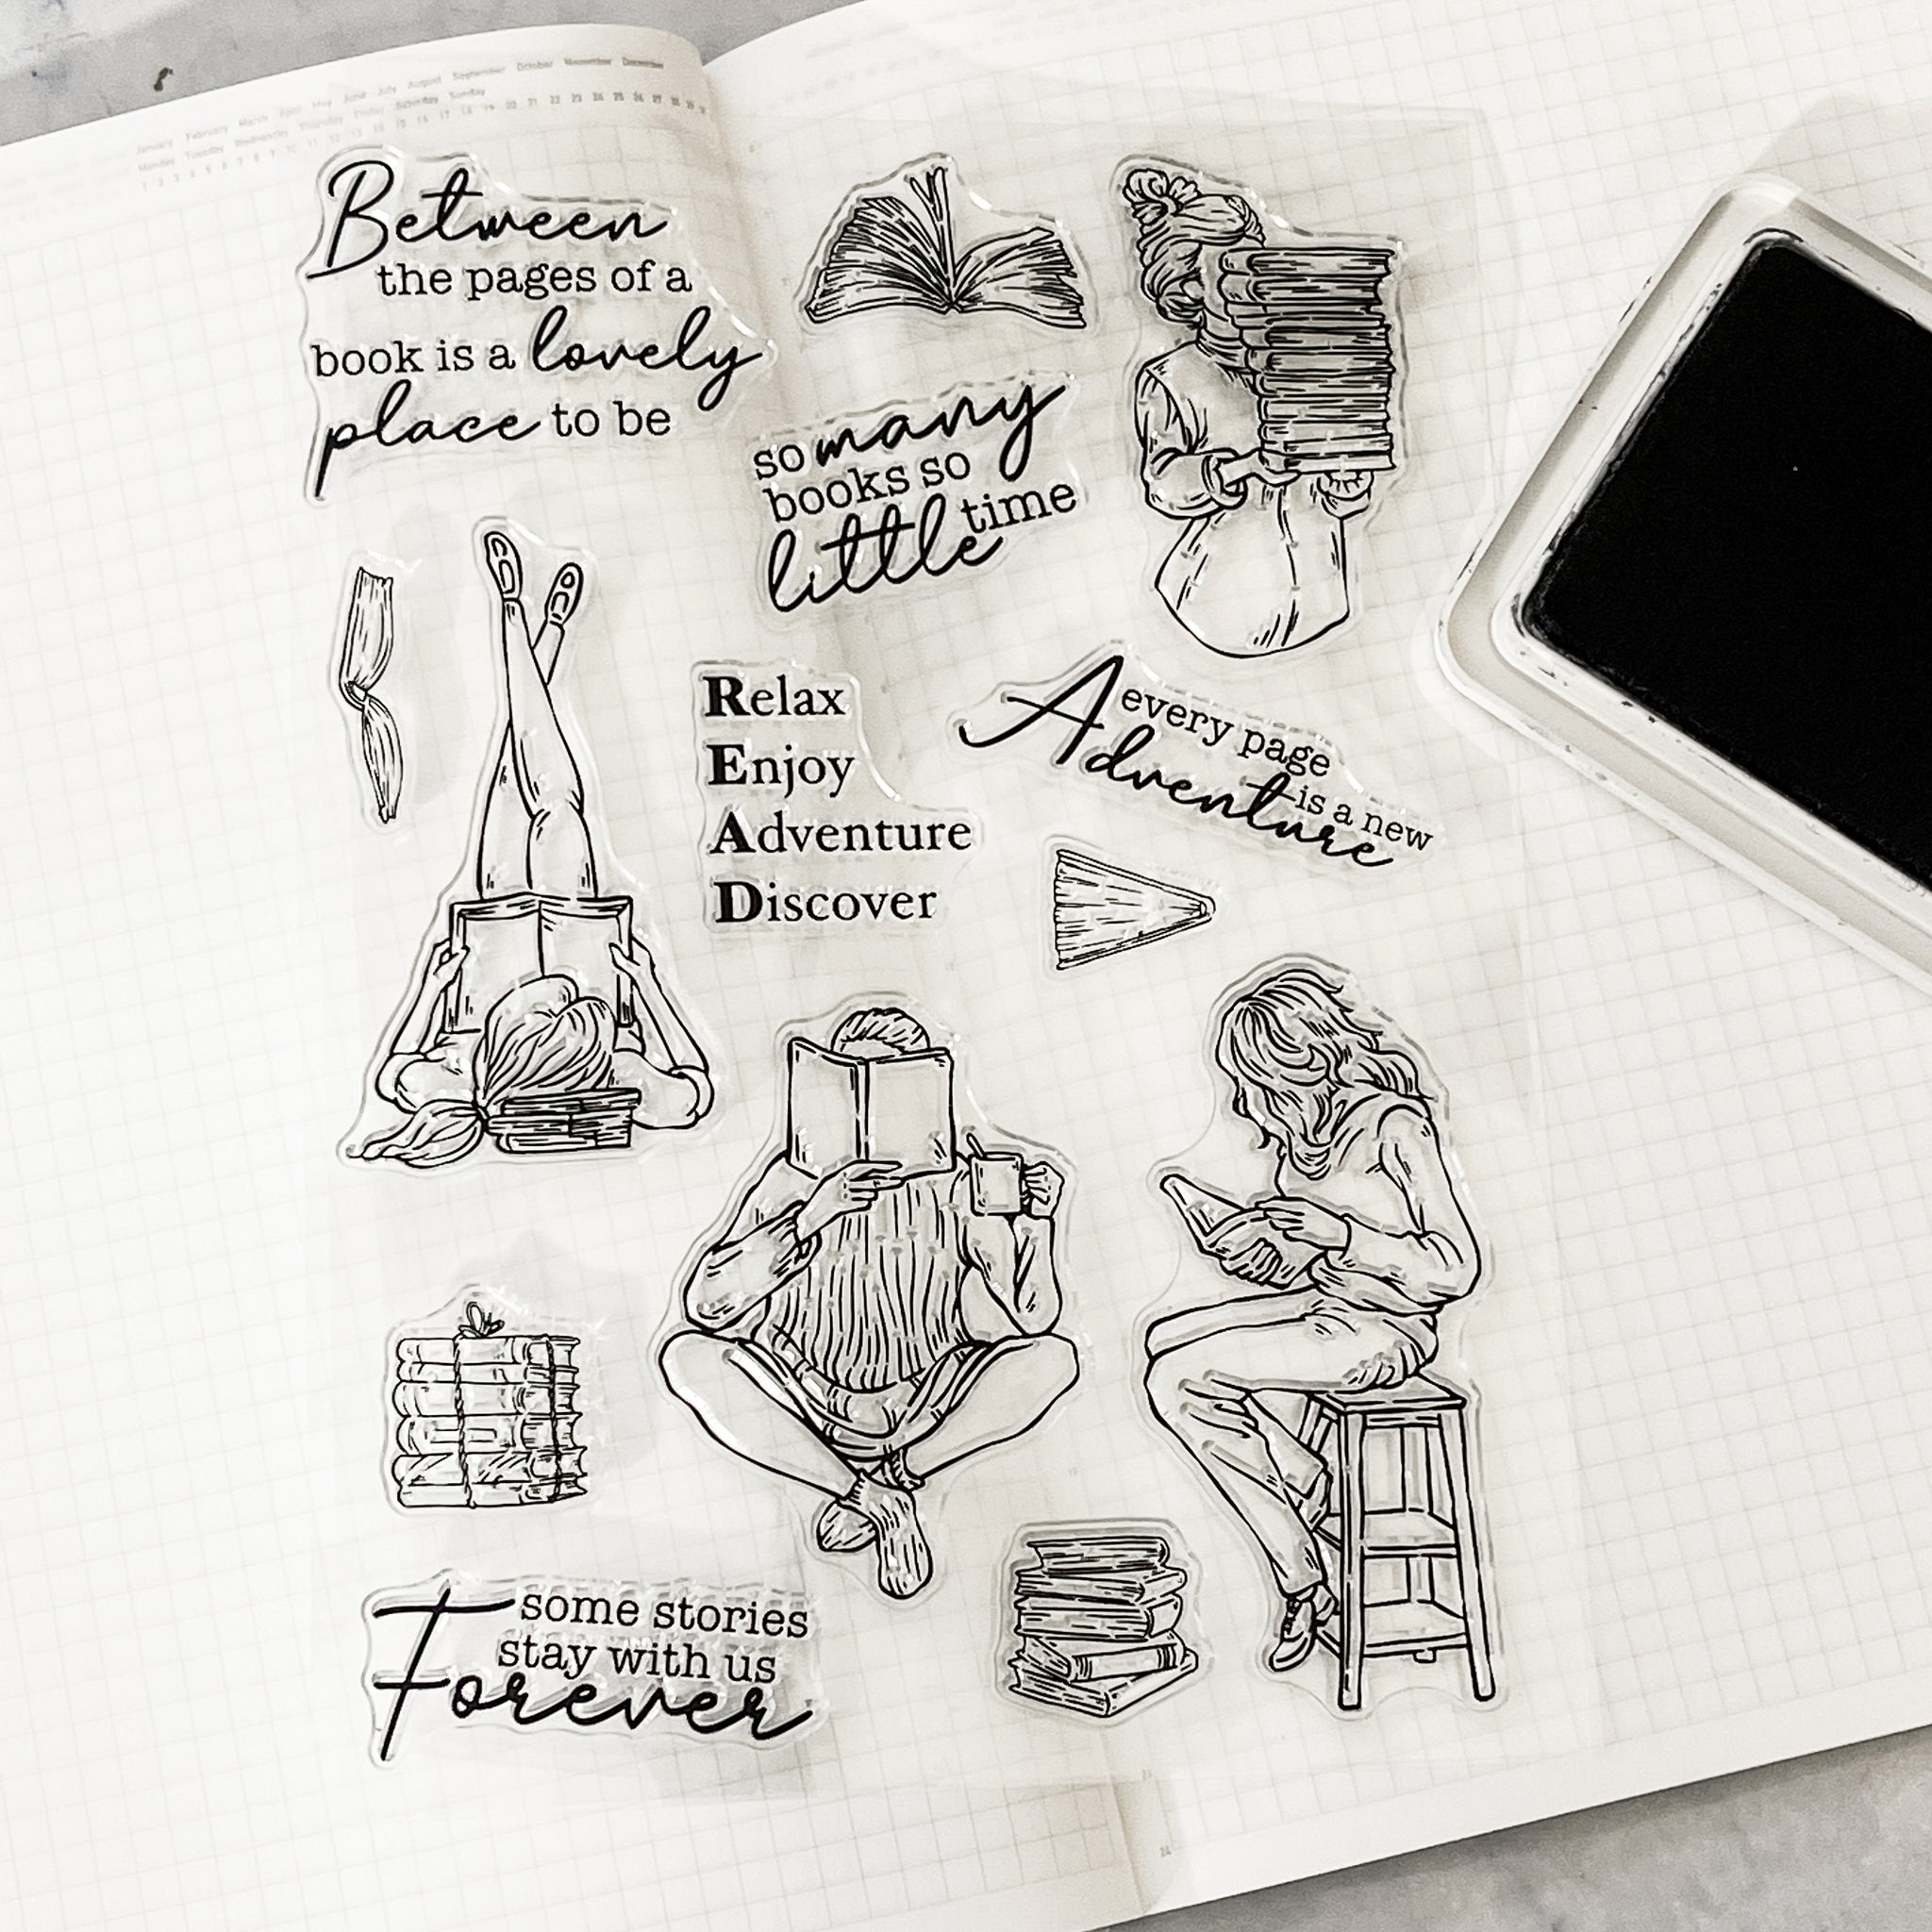 January February March April May June July August September October November December
Monday Tuesday Wednesday Thursday Friday Saturday Sunday
Between
the pages of a
book is a lovely
place to be
so many
books so
little time
Relax
Enjoy
Adventure
Discover
every page
is a new
Adventure
some stories
stay with us
Forever